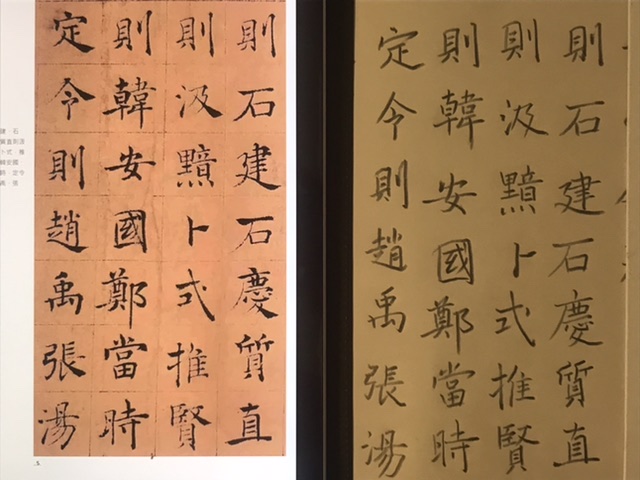 則石建石慶質直
則汲黯卜式推賢
則韓安國鄭當時
定令則趙禹張湯
則石建石慶質直
則汲黯卜式推賢
則韓安國鄭當時
定令則趙禹張湯